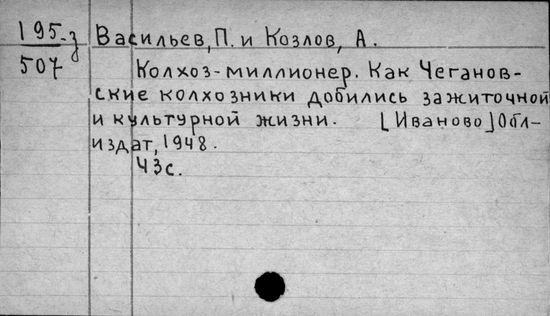 195-з
507
Васильев, П. и Козлов, А.
Колхоз-миллионер. Как Чеганов-
ские колхозники добились зажиточной
и культурной жизни. [Иваново] Обл-
издат, 1948.
43с.